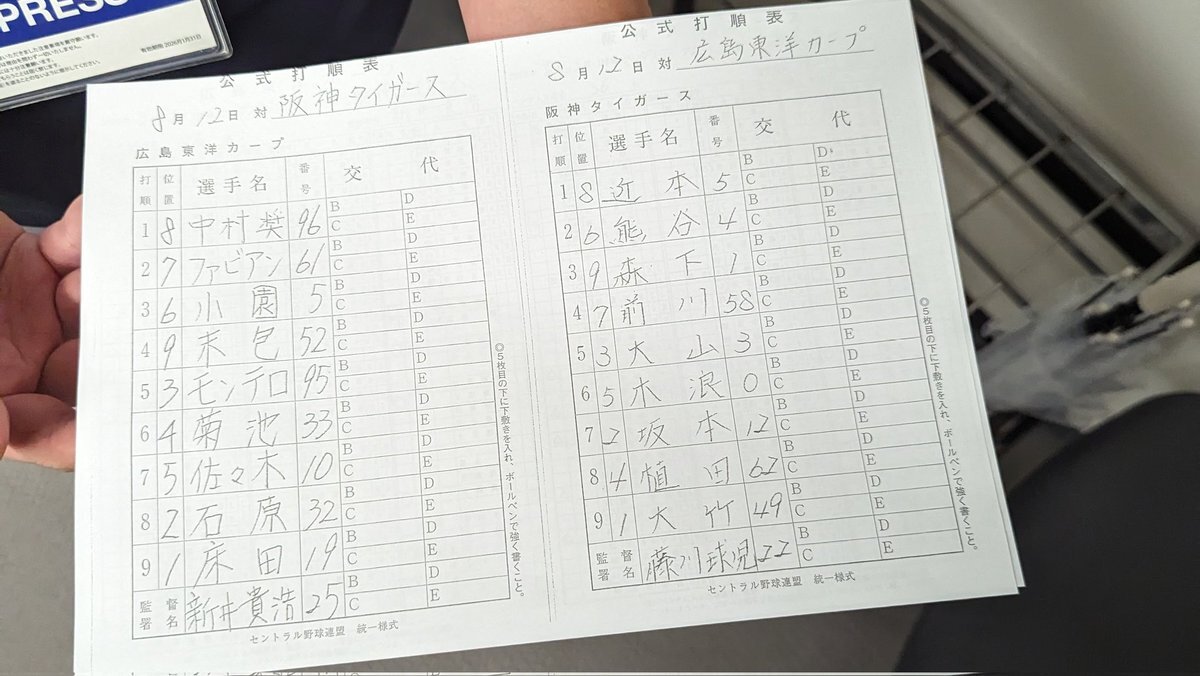 PRESS
有効期限 2026年1月31日
公式打順表
8月12日 対 阪神タイガース
広島東洋カープ
打順 位置 選手名 番号 交代
1 8 中村奨 96 B C D E
2 7 ファビアン 61 B C D E
3 6 小園 5 B C D E
4 9 末包 52 B C D E
5 3 モンテロ 95 B C D E
6 4 菊池 33 B C D E
7 5 佐々木 10 B C D E
8 2 石原 32 B C D E
9 1 床田 19 B C D E
監督署名 新井貴浩 25 B C D E
セントラル野球連盟 統一様式
◎5枚目の下に下敷きを入れ、ボールペンで強く書くこと。
公式打順表
8月12日 対 広島東洋カープ
阪神タイガース
打順 位置 選手名 番号 交代
1 8 近本 5 B C D E
2 6 熊谷 4 B C D E
3 9 森下 1 B C D E
4 7 前川 58 B C D E
5 3 大山 3 B C D E
6 5 木浪 0 B C D E
7 2 坂本 12 B C D E
8 4 植田 62 B C D E
9 1 大竹 49 B C D E
監督署名 藤川球児 22 B C D E
セントラル野球連盟 統一様式
◎5枚目の下に下敷きを入れ、ボールペンで強く書くこと。